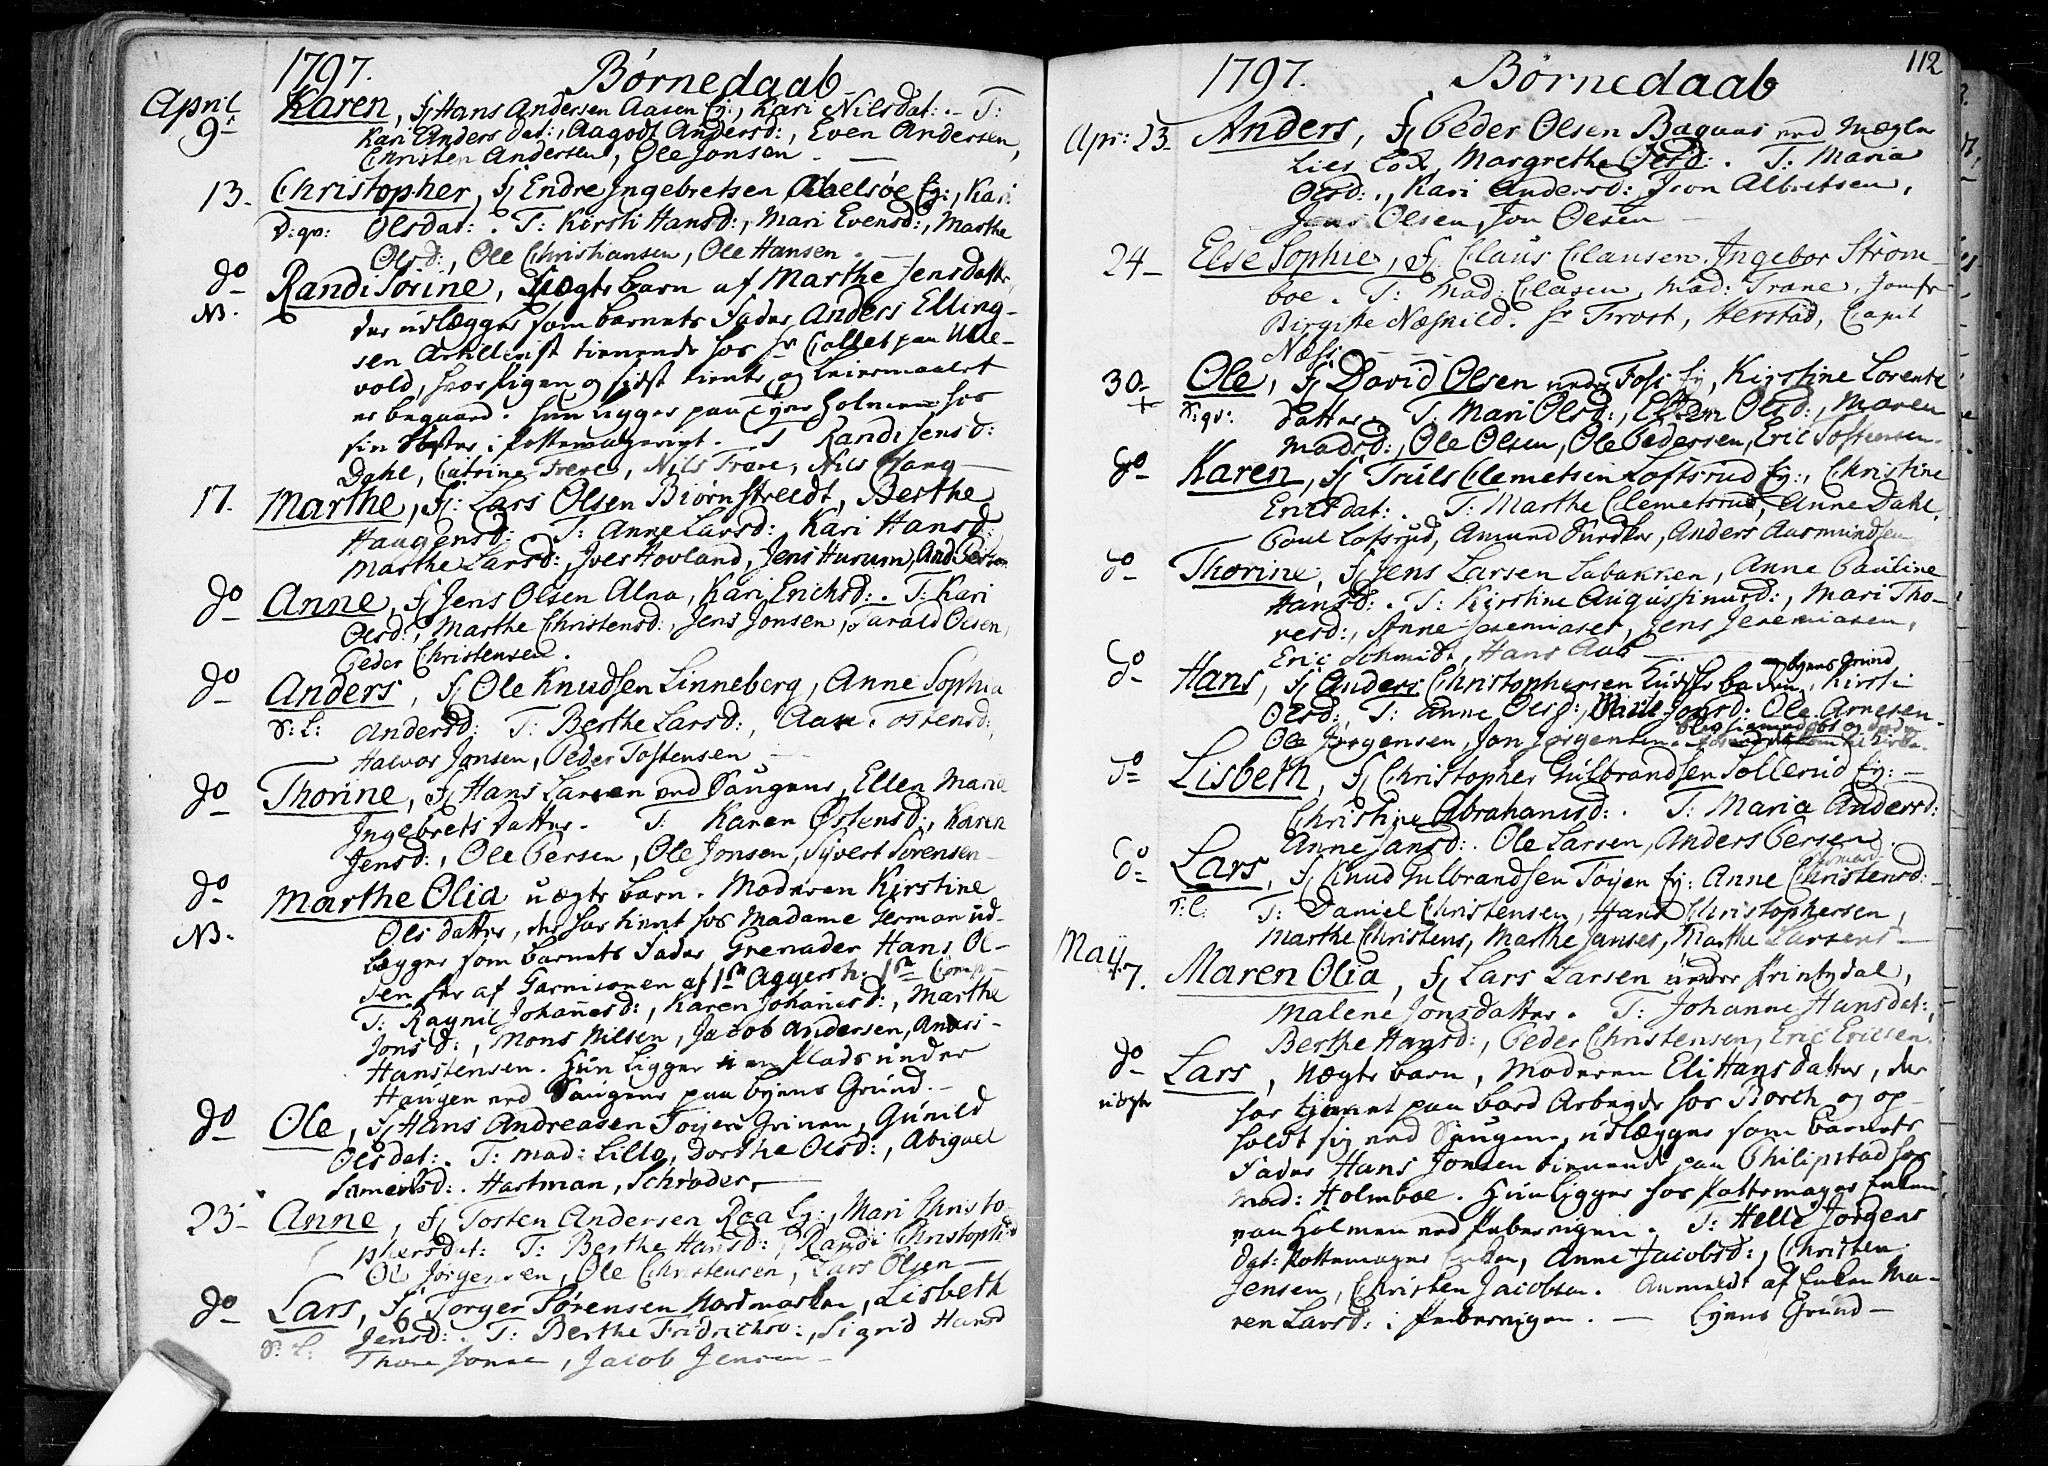 1797. Børnedaab
April 9de Karen, f. Hans Andersen Aasen Ej:, Kari Nilsdat: - T:
Kari Andersdat:, Aagodt Andersd:, Even Andersen,
Christen Andersen, Ole Jonsen
13. Christopher, f. Endre Ingebretsen Abelsøe Ej:, Kari
D: qv: Olsdat:. T: Kirsti Hansd:, Mari Evensd:, Marthe
Olsd:, Ole Christiansen, Ole Hansen.
do Randi Sorine, Uægte barn af Marthe Jensdatter,
NB. der udlægger som barnets Fader Anders Elling-
sen Artillerist tienende hos Hr Collet paa Ulle-
vold, hvor Pigen og sidst tiente og Leiermaalet
er begaaed. Hun ligger paa Tyveholmen hos
sin Søster i Pottemagerigt. T Randi Jensd:
Dahl, Catrine Frere, Nils Frere, Nils Haug
17. Marthe, f: Lars Olsen Biørnstredt, Berthe
Haagensd: T: Anne Larsd:, Kari Hansd:
Marthe Larsd:, Iver Hovland, Jens Hurum, And
do Anne, f. Jens Olsen Alna, Kari Erichsd:. T: Kari
Olsd:, Marthe Christensd:, Jens Jonsen, Tarald Olsen,
Peder Christensen.
do Anders, f. Ole Knudsen Linneberg, Anne Sophia
S: L: Andersd: T: Berthe Larsd:, Aase Tostensd:,
Halvor Jansen, Peder Tostensen
do Thorine, f. Hans Larsen ved Saugene, Ellen Maria
Ingebrets datter. T: Karen Østensd:, Karen
Jensd:, Ole Persen, Ole Jonsen, Syvert Sørensen
do Marthe Olia uægte barn. Moderen Kirstine
NB. Olsdatter, der har tient hos Madame Herman ud-
lægger som barnets Fader Grenader Hans Ol-
sen her af Garnisonen af 1ste Aggersh. 1ste Comp
T: Ragnil Johanesd:, Karen Johanesd:, Marthe
Jonsd:, Mons Nilsen, Jacob Andersen, Anders
Hanstensen. Hun ligger i en Plads under
Haugen ved Saugene paa byens Grund.
do Ole, f. Hans Andreasen Tøijen Grinen, Gunild
Olsdat:. T: mad: Lillo, Dorthe Olsd:, Abigael
Hartman, Schrøder,
23 Anne, f. Tosten Andersen Roa Ej:, Mari Christo
phersdat: T: Berthe Hansd:, Randi Christophd
Ole Jørgensen, Ole Christensen, Lars Olsen
do Lars, f. Torger Sørensen Nordmarken, Lisbeth
S: L: Jensd:. T: Berthe Fridrichsd:, Sigrid Hansd
Thore Jonsen, Jacob Jensen
1797. Børnedaab 112
Apr: 23 Anders, f. Peder Olsen Bagaas ved Mægler
Lies Løk, Margrethe Olsd:. T: Maria
Olsd:., Kari Andersd: Iron Albretsen,
Jens Olsen, Jon Olsen
24 Else Sophie, f. Claus Clausen, Ingebor Strøm-
boe. T: Mad: Clasen, Mad: Trane, Jomfr
Birgitte Hr Trost, Herstad, Capit
Næss
30 Ole, f. David Olsen under Foss Ej, Kirstine Lorentz
D: qv: datter. T: Mari Olsd:, Ellen Olsd:, Maren
Madsd:, Ole Olsen, Ole Pedersen, Eric Tostensen.
do Karen, f. Truls Clemetsen Loftsrud Ej:, Christine
Ericsdat:. T: Marthe Clemetsrud, Anne Dahl,
Poul Lofsrud, Amund, Anders Aasmundsen
do Thorine, f. Jens Larsen Labakken, Anne Pauline
Hansd:. T: Kirstine Augustinusd:, Mari Tho-
resd:, Anne Jeremiases, Jens Jeremiasen,
Eric Schmidt, Hans Aas
byens Grund
do Hans, f. Anders Christophersen, Kirsti
Olsd:, T: Anne Olsd:, Marte Jonsd: Ole Arnesen.
Ole Jørgensen, Jon Jørgensen.
do Lisbeth, f. Christopher Gulbrandsen Sollerud Ej:
Christine Abrahamsd:. T: Maria Andersd:
Anne Jansd:. Ole Larsen, Anders Persen
do Lars, f. Knud Gulbrandsen Tøijen Ej: Anne Christensd:
S: L: T: Daniel Christensen, Hans Christophersen,
Marthe Christens, Marthe Janses, Marthe Larsens
May 7. Maren Olia, f. Lars Larsen under Frintzdal,
Malene Jonsdatter. T: Johanne Hansdat:,
Berthe Hansd:, Peder Christensen, Eric Ericsen.
do Lars, Uægte barn, Moderen Eli Hansdatter, der
uægte har tient paa bord Arbeyde hos Borch og op-
holdt sig ved Saugene, udlægger som barnets
Fader Hans Jonsen tienende paa Philipstad hos
Mad: Holmboe. Hun ligger hos Pottemager Enken
paa Holmen ved Pebervigen. T: Helle Jørgens
dat: Pottemager Enken, Anne Jacobsd:, Christen
Jensen, Christen Jacobsen. Anmeldt af Enken Ma-
ren Larsd: i Pebervigen. Byens Grund